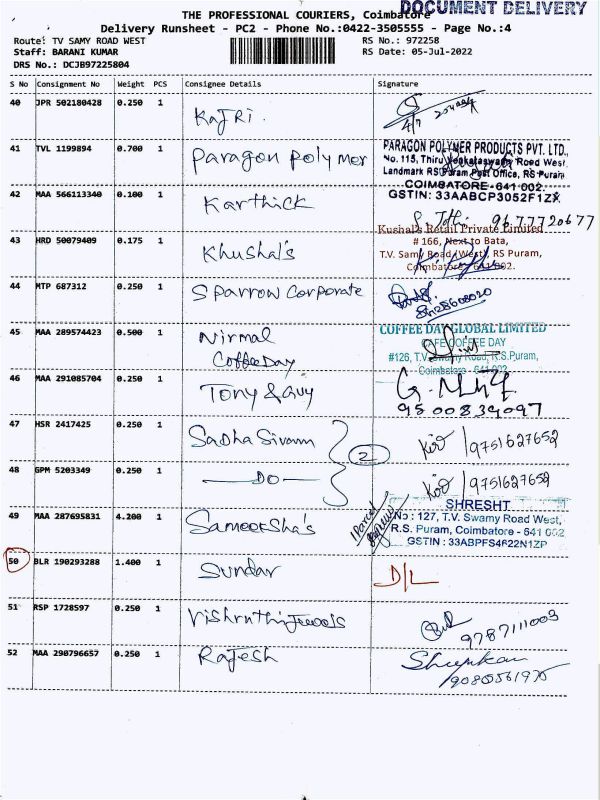 DOCUMENT DELIVERY
THE PROFESSIONAL COURIERS, Coimbatore
Delivery Runsheet - PC2 - Phone No.:0422-3505555 - Page No.:4
Route: TV SAMY ROAD WEST
RS No.: 972258
Staff: BARANI KUMAR
RS Date: 05-Jul-2022
DRS No.: DCJB97225804
S No Consignment No Weight PCS Consignee Details Signature
40 JPR 502180428 0.250 1 Kajri.
4/7
41 TVL 1199894 0.700 1 Paragon Polymer
PARAGON POLYMER PRODUCTS PVT. LTD.,
No. 115, Thiru Venkataswamy Road West,
Landmark RS Puram Post Office, RS Puram
COIMBATORE-641 002.
GSTIN: 33AABCP3052F1ZX
42 MAA 566113340 0.100 1 Karthick
9677720677
43 HRD 50079409 0.175 1 Khushal's
Kushal's Retail Private Limited
# 166, Next to Bata,
T.V. Samy Road (West), RS Puram,
Coimbatore - 641 002.
44 MTP 687312 0.250 1 Sparrow Corporate
45 MAA 289574423 0.500 1 Nirmal
Coffee Day
COFFEE DAY GLOBAL LIMITED
CAFE COFFEE DAY
#126, T.V. Swamy Road, R.S.Puram,
Coimbatore - 641 002
46 MAA 291085704 0.250 1 Tony & Guy
9500839097
47 HSR 2417425 0.250 1 Sadha Sivam
2
9751627652
48 GPM 5203349 0.250 1 —DO—
9751627652
49 MAA 287695831 4.200 1 Sameeksha's
1 Parcel
SHRESHT
No : 127, T.V. Swamy Road West,
R.S. Puram, Coimbatore - 641 002
GSTIN : 33ABPFS4622N1ZP
50 BLR 190293288 1.400 1 Sundar D/L
51 RSP 1728597 0.250 1 Vishruthi Jewels
9787111003
52 MAA 290796657 0.250 1 Rajesh